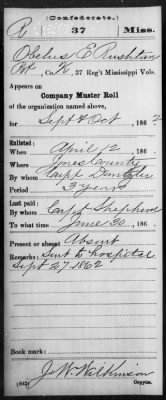 (Confederate.)
R 37 Miss.
Obelus E Rushton
Pvt, Co. K, 37 Reg't Mississippi Vols.
Appears on
Company Muster Roll
of the organization named above,
for Sept & Oct, 1862
Enlisted:
When April 12, 186
Where Jones County
By whom Capt
Period 3 years
Last paid:
By whom Capt Shepherd
To what time June 30, 186
Present or absent Absent
Remarks: Sent to hospital
Sept 27 1862
Book mark:
J. W. Wilkinson
(642) Copyist.